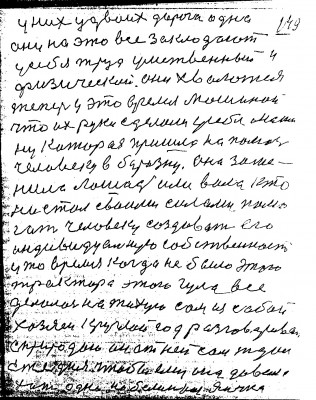 149
у них у двоих дорога одна
они на это все закладают
у себя труд умственный и
физической. они хвалются
теперь у это время машиной
что их руки сделали у себя маши
ну которая пришла на помощь
человеку в борозну. она заме-
нила лошадь или вола кто
настоял своими силами помо
гат человеку создават его
индивидуалную собственность
у то время когда не было этого
трактора этого гула все
делалося на тихую сам из собой
хозяин круглой год разговаривал
с природою он от ней сам ждал